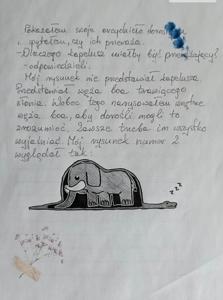 Pokazałem swoje arcydzieło dorosłym
i pytałem, czy ich przeraża.
- Dlaczego kapelusz miałby być przerażający?
- odpowiedzieli.
Mój rysunek nie przedstawiał kapelusza.
Przedstawiał węża boa trawiącego
słonia. Wobec tego narysowałem wnętrze
węża boa, aby dorośli mogli to
zrozumieć. Zawsze trzeba im wszystko
wyjaśniać. Mój rysunek numer 2
wyglądał tak:
z z z